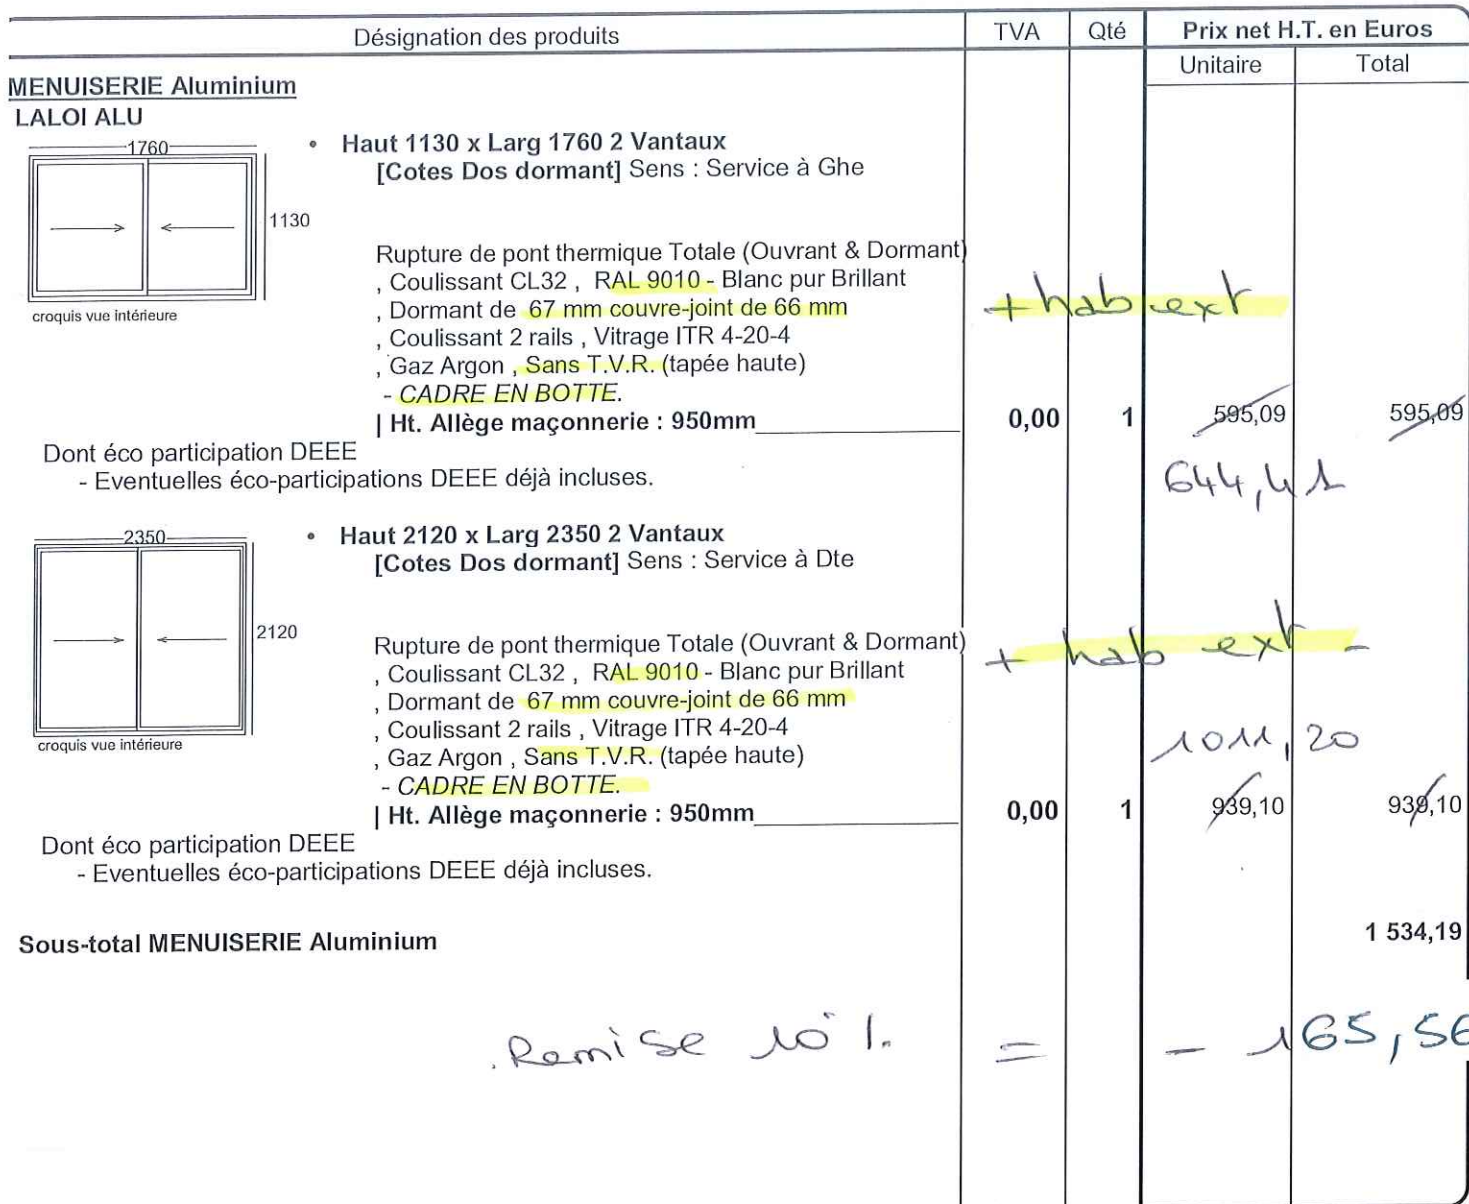 Désignation des produits TVA Qté Prix net H.T. en Euros
Unitaire Total
MENUISERIE Aluminium
LALOI ALU
1760
• Haut 1130 x Larg 1760 2 Vantaux
[Cotes Dos dormant] Sens : Service à Ghe
1130
Rupture de pont thermique Totale (Ouvrant & Dormant)
, Coulissant CL32 , RAL 9010 - Blanc pur Brillant
+ hab ext
, Dormant de 67 mm couvre-joint de 66 mm
croquis vue intérieure
, Coulissant 2 rails , Vitrage ITR 4-20-4
, Gaz Argon , Sans T.V.R. (tapée haute)
- CADRE EN BOTTE.
| Ht. Allège maçonnerie : 950mm 0,00 1 595,09 595,09
Dont éco participation DEEE
- Eventuelles éco-participations DEEE déjà incluses.
644,41
2350
• Haut 2120 x Larg 2350 2 Vantaux
[Cotes Dos dormant] Sens : Service à Dte
2120
Rupture de pont thermique Totale (Ouvrant & Dormant)
+ hab ext -
, Coulissant CL32 , RAL 9010 - Blanc pur Brillant
, Dormant de 67 mm couvre-joint de 66 mm
, Coulissant 2 rails , Vitrage ITR 4-20-4
croquis vue intérieure
1011,20
, Gaz Argon , Sans T.V.R. (tapée haute)
- CADRE EN BOTTE.
| Ht. Allège maçonnerie : 950mm 0,00 1 939,10 939,10
Dont éco participation DEEE
- Eventuelles éco-participations DEEE déjà incluses.
Sous-total MENUISERIE Aluminium 1 534,19
Remise 10 % = - 165,56